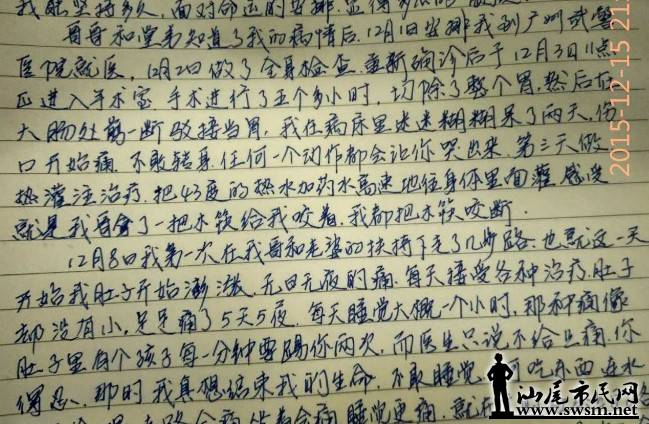 我能坚持多久，面对命运的安排，显得
哥哥和堂弟知道了我的病情后，12月1日安排我到广州武警
医院就医，12月2日做了全身检查，重新确诊后于12月3日11点
正进入手术室，手术进行了五个多小时，切除了整个胃，然后在
大肠处剪一断驳接当胃，我在病床里迷迷糊糊呆了两天，伤
口开始痛，不敢转身，任何一个动作都会让你哭出来，第三天做
热灌注治疗，把43度的热水加药水高速地往身体里面灌，感受
就是我哥拿了一把木筷给我咬着，我都把木筷咬断.
12月8日我第一次在我哥和老婆的扶持下走了几步路，也就这一天
开始我肚子开始澎涨，无日无夜的痛，每天接受各种治疗，肚子
却没有小，足足痛了5天5夜，每天睡觉大概一个小时，那种痛像
肚子里有个孩子每一分钟要踢你两次，而医生只说不给止痛，你
得忍、那时我真想结束我的生命，不敢睡觉 可吃东西 连水
走路会痛 会痛 睡觉更痛，就
2015-12-15 21:
汕尾市民网
www.swsm.net